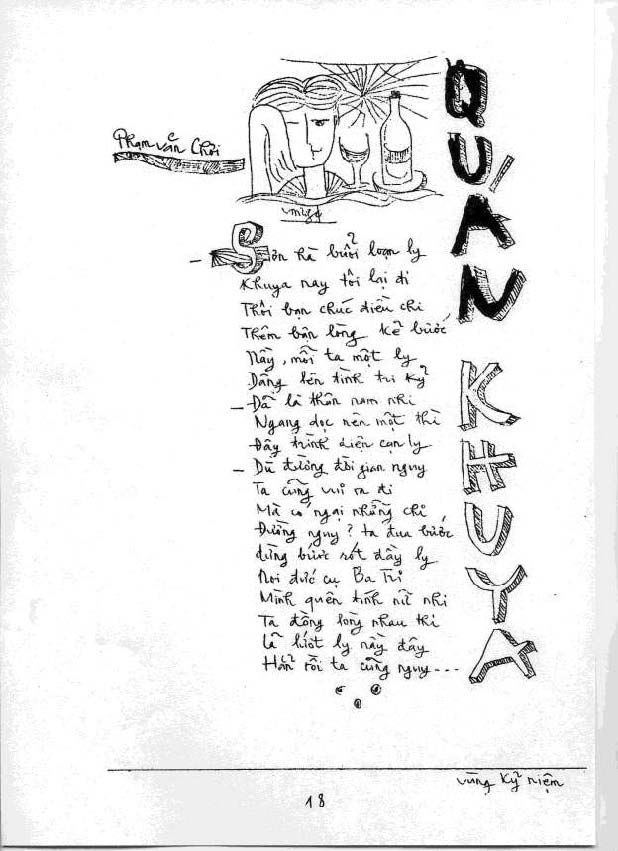 QUÁN KHUYA
Phạm văn Chời
Sơn hà buổi loạn ly
Khuya nay tôi lại đi
Thôi bạn chúc điều chi
Thêm bận lòng kẻ bước
Này, mời ta một ly
Dâng lên tình tri kỷ
– Đã là thân nam nhi
Ngang dọc nên một thì
Đây trình diện cạn ly
– Dù đường đời gian nguy
Ta cũng vui ra đi
Mà có ngại những chi
Đường nguy? ta đua bước
dừng bước rót đầy ly
Noi đức cụ Ba Tri
Mình quên tình nữ nhi
Ta đồng lòng nhau thì
Là hốt ly này đây
Hẳn rồi ta cũng nguy...
vùng kỷ niệm
18